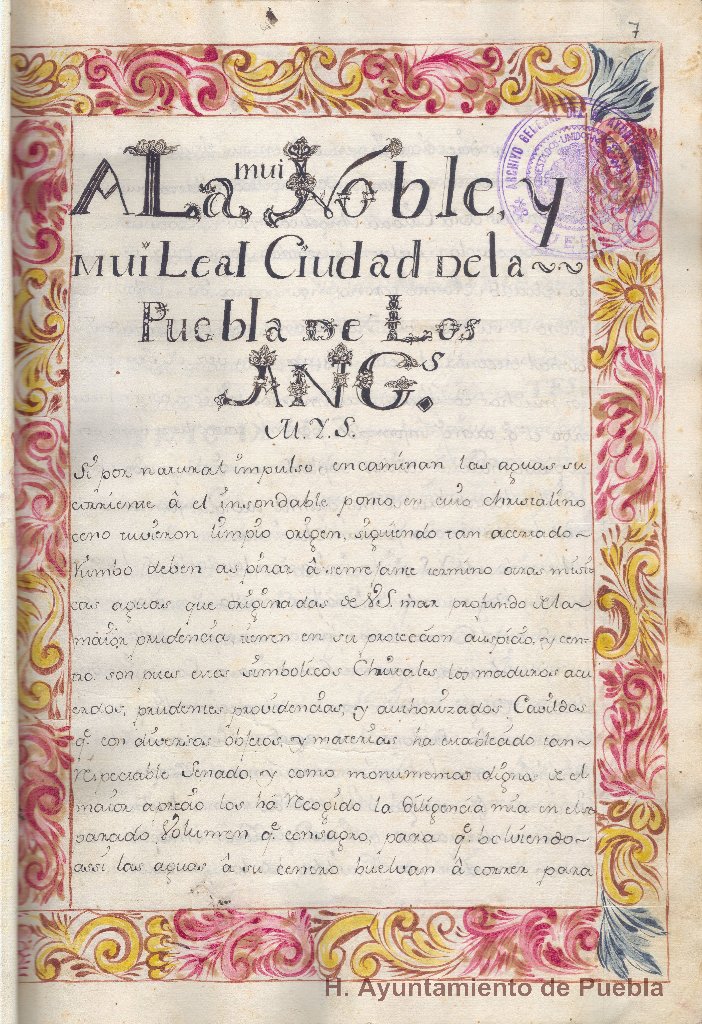 7
A La mui Noble, y
Mui Leal Ciudad De la
Puebla de Los
ANG.s
M.Y.S.
Si por natural impulso, encaminan las aguas su
corriente â el insondable ponto, en cuio christalino
ceno tuvieron limpio origen, siguiendo tan acertado-
Rumbo deben aspirar â semejante termino otras misti
cas aguas que originadas de V.S. mar profundo de la-
maior prudencia, tienen en su proteccion auspicio, y cen-
tro: son pues estas simbolicos Christales los maduros acu
erdos, prudentes providencias, y authorizados Cavildos
q.e con diversos objetos, y materias ha establecido tan-
Respectable Senado, y como monumentos dignos de el
maior aprecio los ha Recogido la diligencia mia en este
parcido Volumen q.e consagro, para q.e bolviendo-
assi las aguas â su centro buelvan â correr para
ARCHIVO GENERAL DEL
ESTADOS UNIDOS
PUEBLA
H. Ayuntamiento de Puebla